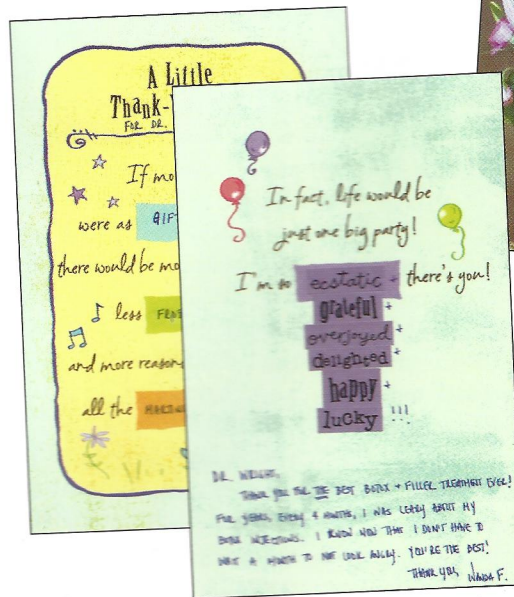 A Little
Thank-
FOR DR.
If mo
were as GIF
there would be mo
less
and more reason
all the
In fact, life would be
just one big party!
I'm so ecstatic + there's you!
grateful +
overjoyed +
delighted +
happy +
lucky !!!
DR. WRIGHT,
THANK YOU FOR THE BEST BOTOX + FILLER TREATMENT EVER!
FOR YEARS, EVERY 4 MONTHS, I WAS LEERY ABOUT MY
BOTOX INJECTIONS. I KNOW NOW THAT I DON'T HAVE TO
WAIT A MONTH TO NOT LOOK ANGRY. YOU'RE THE BEST!
THANK YOU, WANDA F.